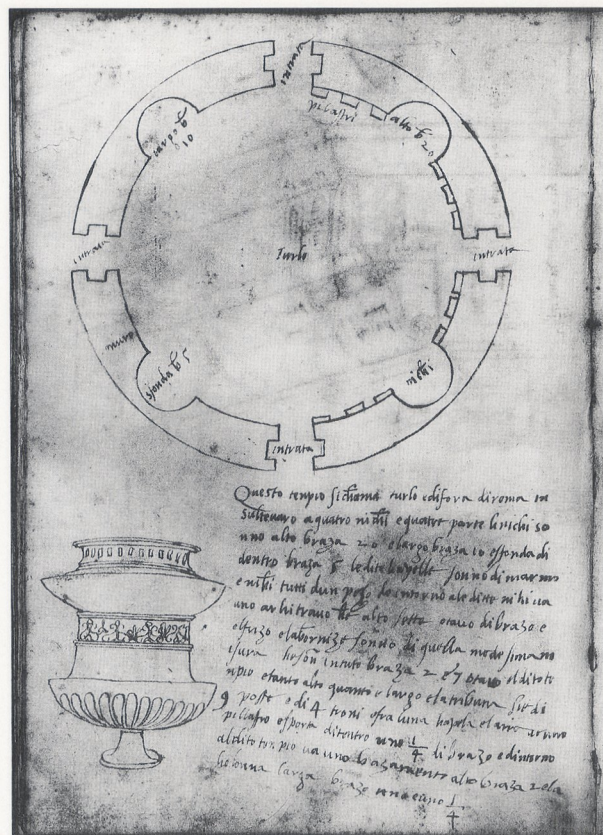 intrata
pilastri
largo b 10
alto b 20
intrata
Turlo
intrata
sfonda b 5
nichi
intrata
Questo tenpio si chiama turlo edifora diroma in
a quatro nichi equatro porte linichi so
nno alto braza 20 elargo braza 10 esfonda di
dentro braza 5 ledite sonno di marmo
enichi tutti dun pezo dintorno ale ditte nichi va
uno arhitravo alto sette otavo di brazo e
elfrizo elacornize sonno di quella medesima mi
sura in tuto braza 2 e 7 otavo el dito te
npio etanto alto quanto elargo elatribuna sie di
9 poste e di 4 troni ofra luna
pilastro esporta di tentro uno 1/4 di brazo edintorno
aldito tenpio va uno bazamento alto braza 2 ela
larga brazo uno e uno 1/4